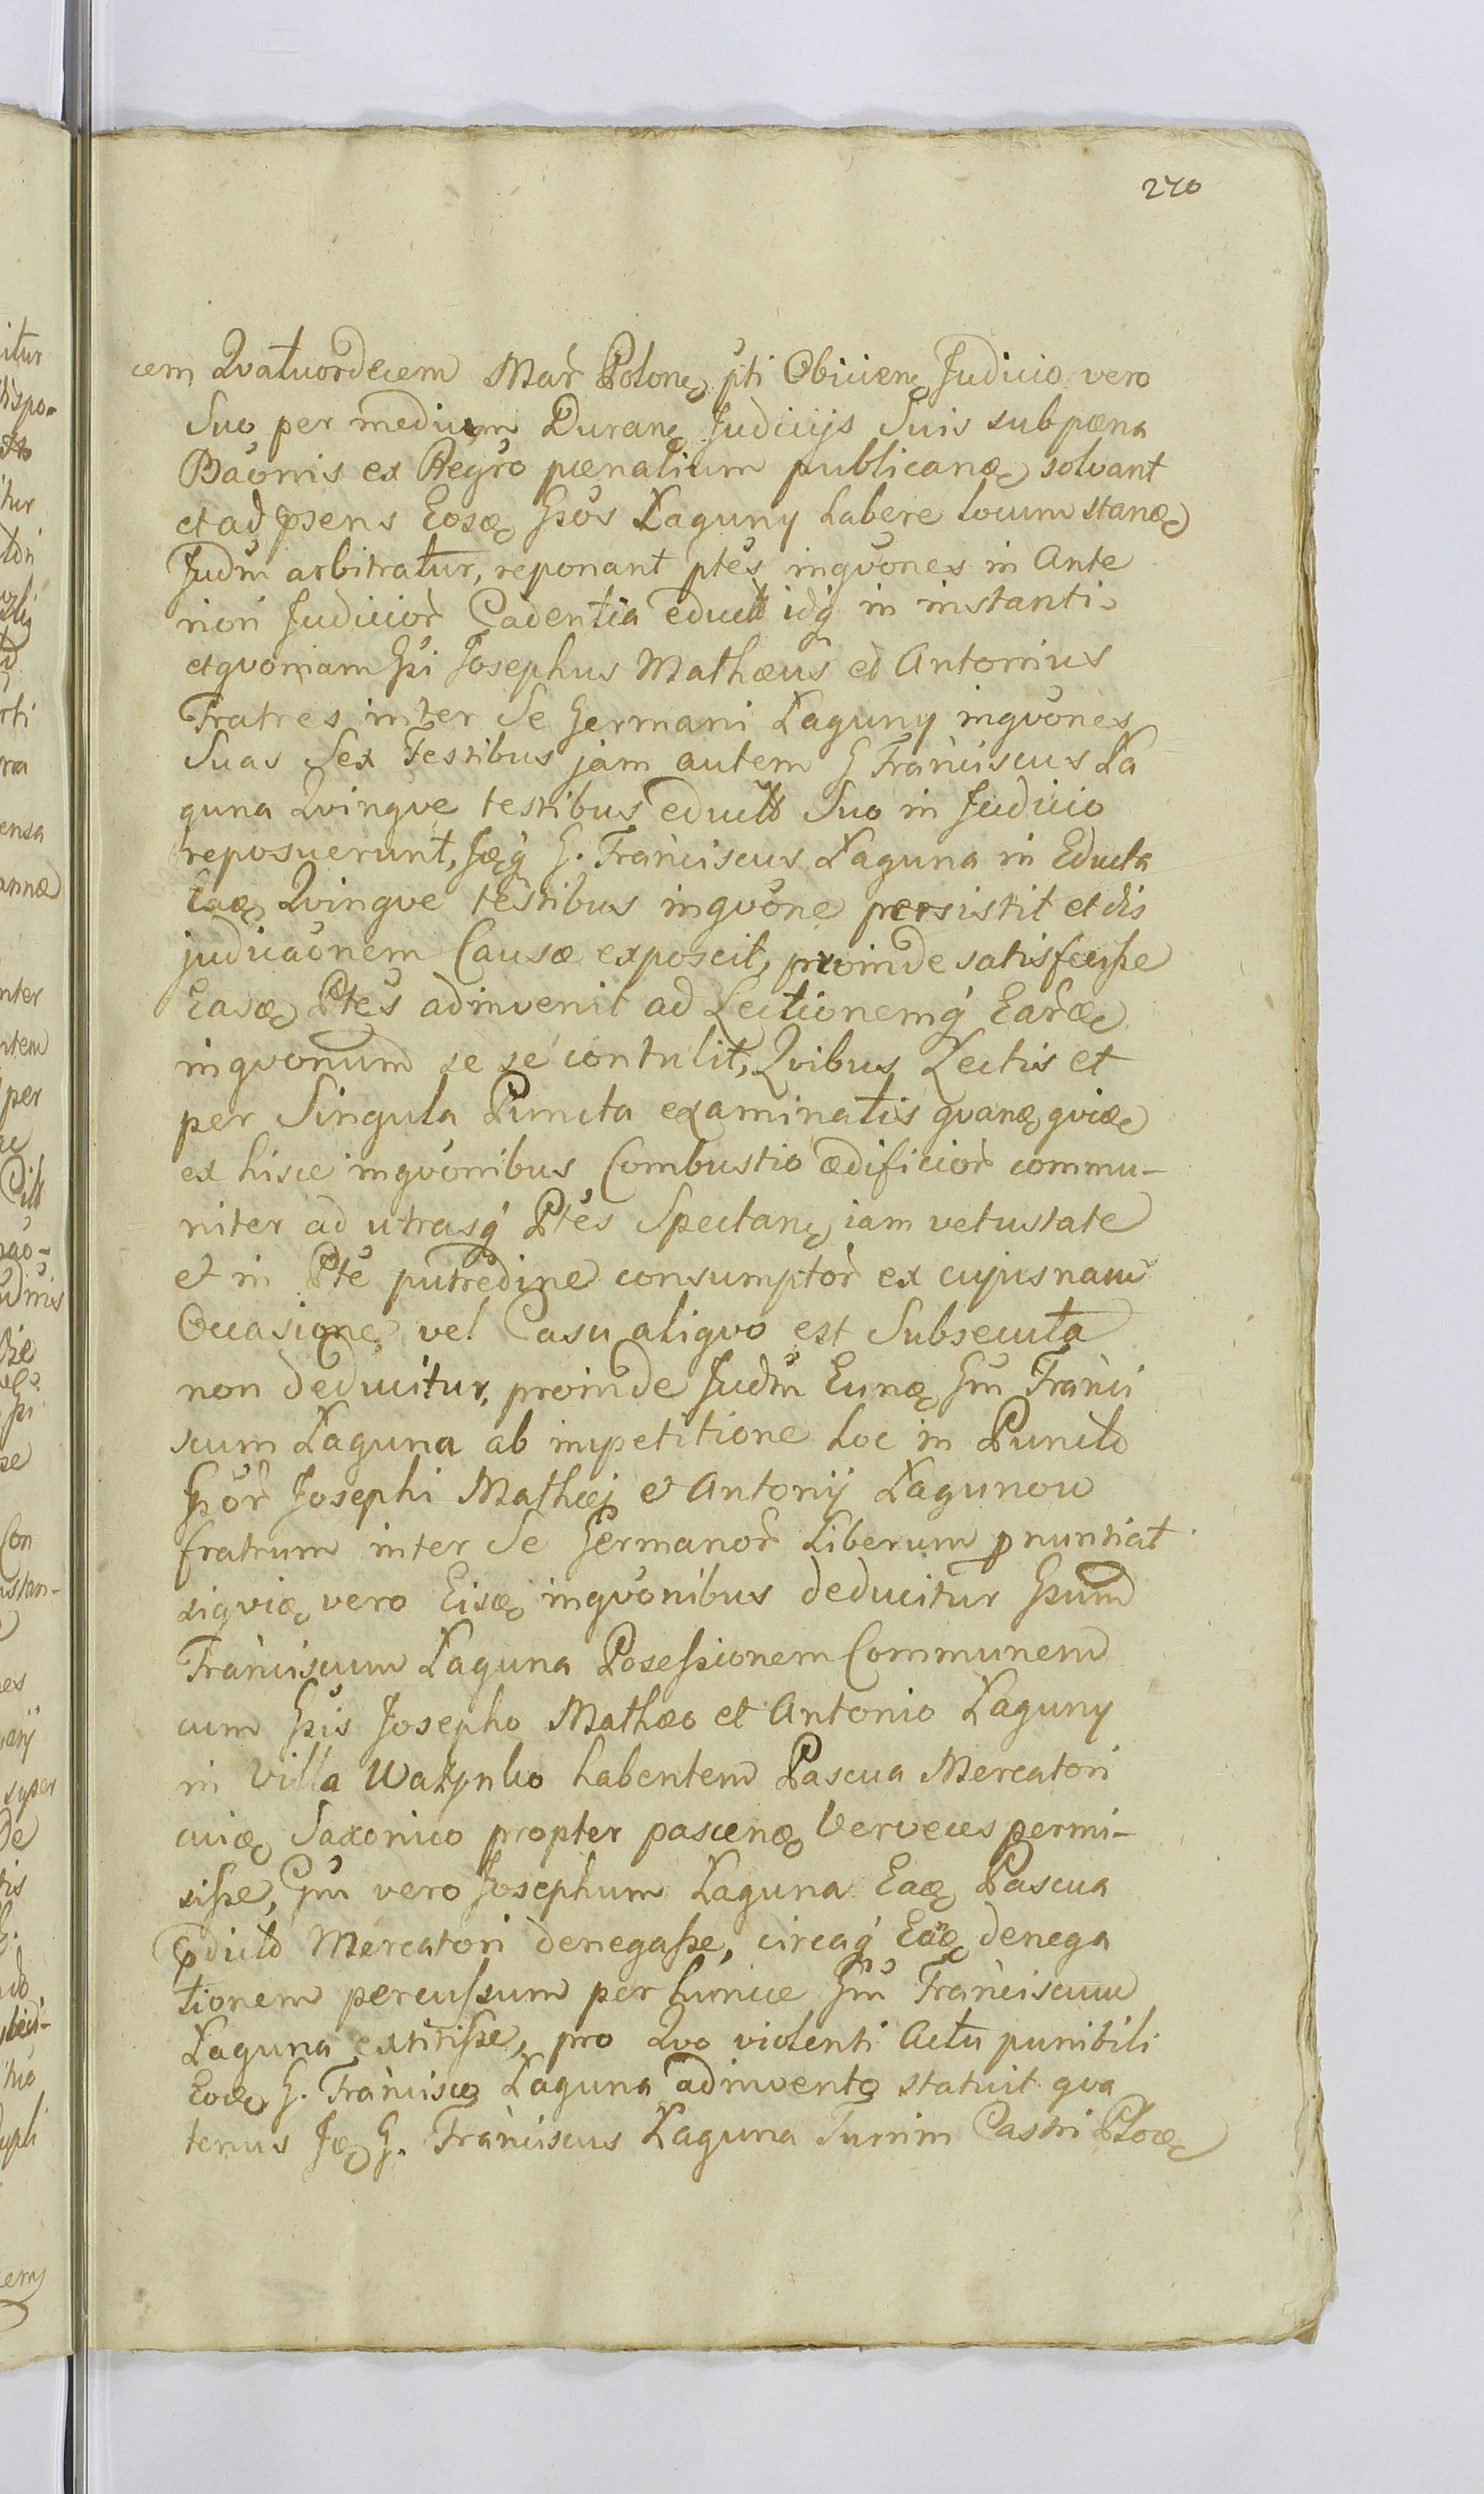 270
cem Qvatuordecem Mar Polon pti Obicien Judicio vero
Suo per medium Duran Judicijs Suis sub pæna
Baonis ex Regro pænalium publicanæ solvant
et ad psens Eosæ Gsos Laguny habere locum stanæ
Judm arbitratur, reponant ptes inqvones in Ante
riori Judicior Cadentia educt idq in instanti
etqvoniam Gsi Josephus Mathæus et Antonius
Fratres inter Se Germani Laguny inqvones
Suas Sex Testibus jam autem G Franciscus La
guna Qvinqve testibus educts Suo in Judicio
reposuerunt, Jæq G. Franciscus Laguna in Educta
Eaæ Qvinqve testibus inqvone persistit et dis
judicaonem Causæ exposcit, proinde satisfecisse
Easæ Ptes adinvenit ad Lectionemq Earæ
inqvonum se se contulit, Qvibus Lectis et
per Singula Puncta examinatis qvanæ qviæ
ex hisce inqvonibus Combustio ædificior commu-
niter ad utrasq Ptes Spectan iam vetustate
et in Pte putredine consumptor ex cujusnam
Occasione vel Casu aliqvo est Subsecuta
non deducitur, proinde Judm Eunæ Gm Franci
scum Laguna ab impetitione hoc in Puncto
Gsor Josephi Mathæj et Antonij Lagunow
fratrum inter Se Germanor Liberum pnuntiat
siqviæ vero Eisæ inqvonibus deducitur Gsum
Franciscum Laguna Posessionem Communem
cum Gsis Josepho Mathæo et Antonio Laguny
in Villa Wazynko habentem Pascua Mercatori
cuiæ Saxonico propter pascenæ Verveces permi-
sisse, Gm vero Josephum Laguna Eaæ Pascua
pdicto Mercatori denegasse, circaq Eaæ denega
tionem percussum per hunce Gm Franciscum
Laguna extitisse, pro Qvo violenti Actu punibili
Eoæ G. Francisco Laguna adinvento statuit qva
tenus Jæ G. Franciscus Laguna Turrim Castri Ploæ